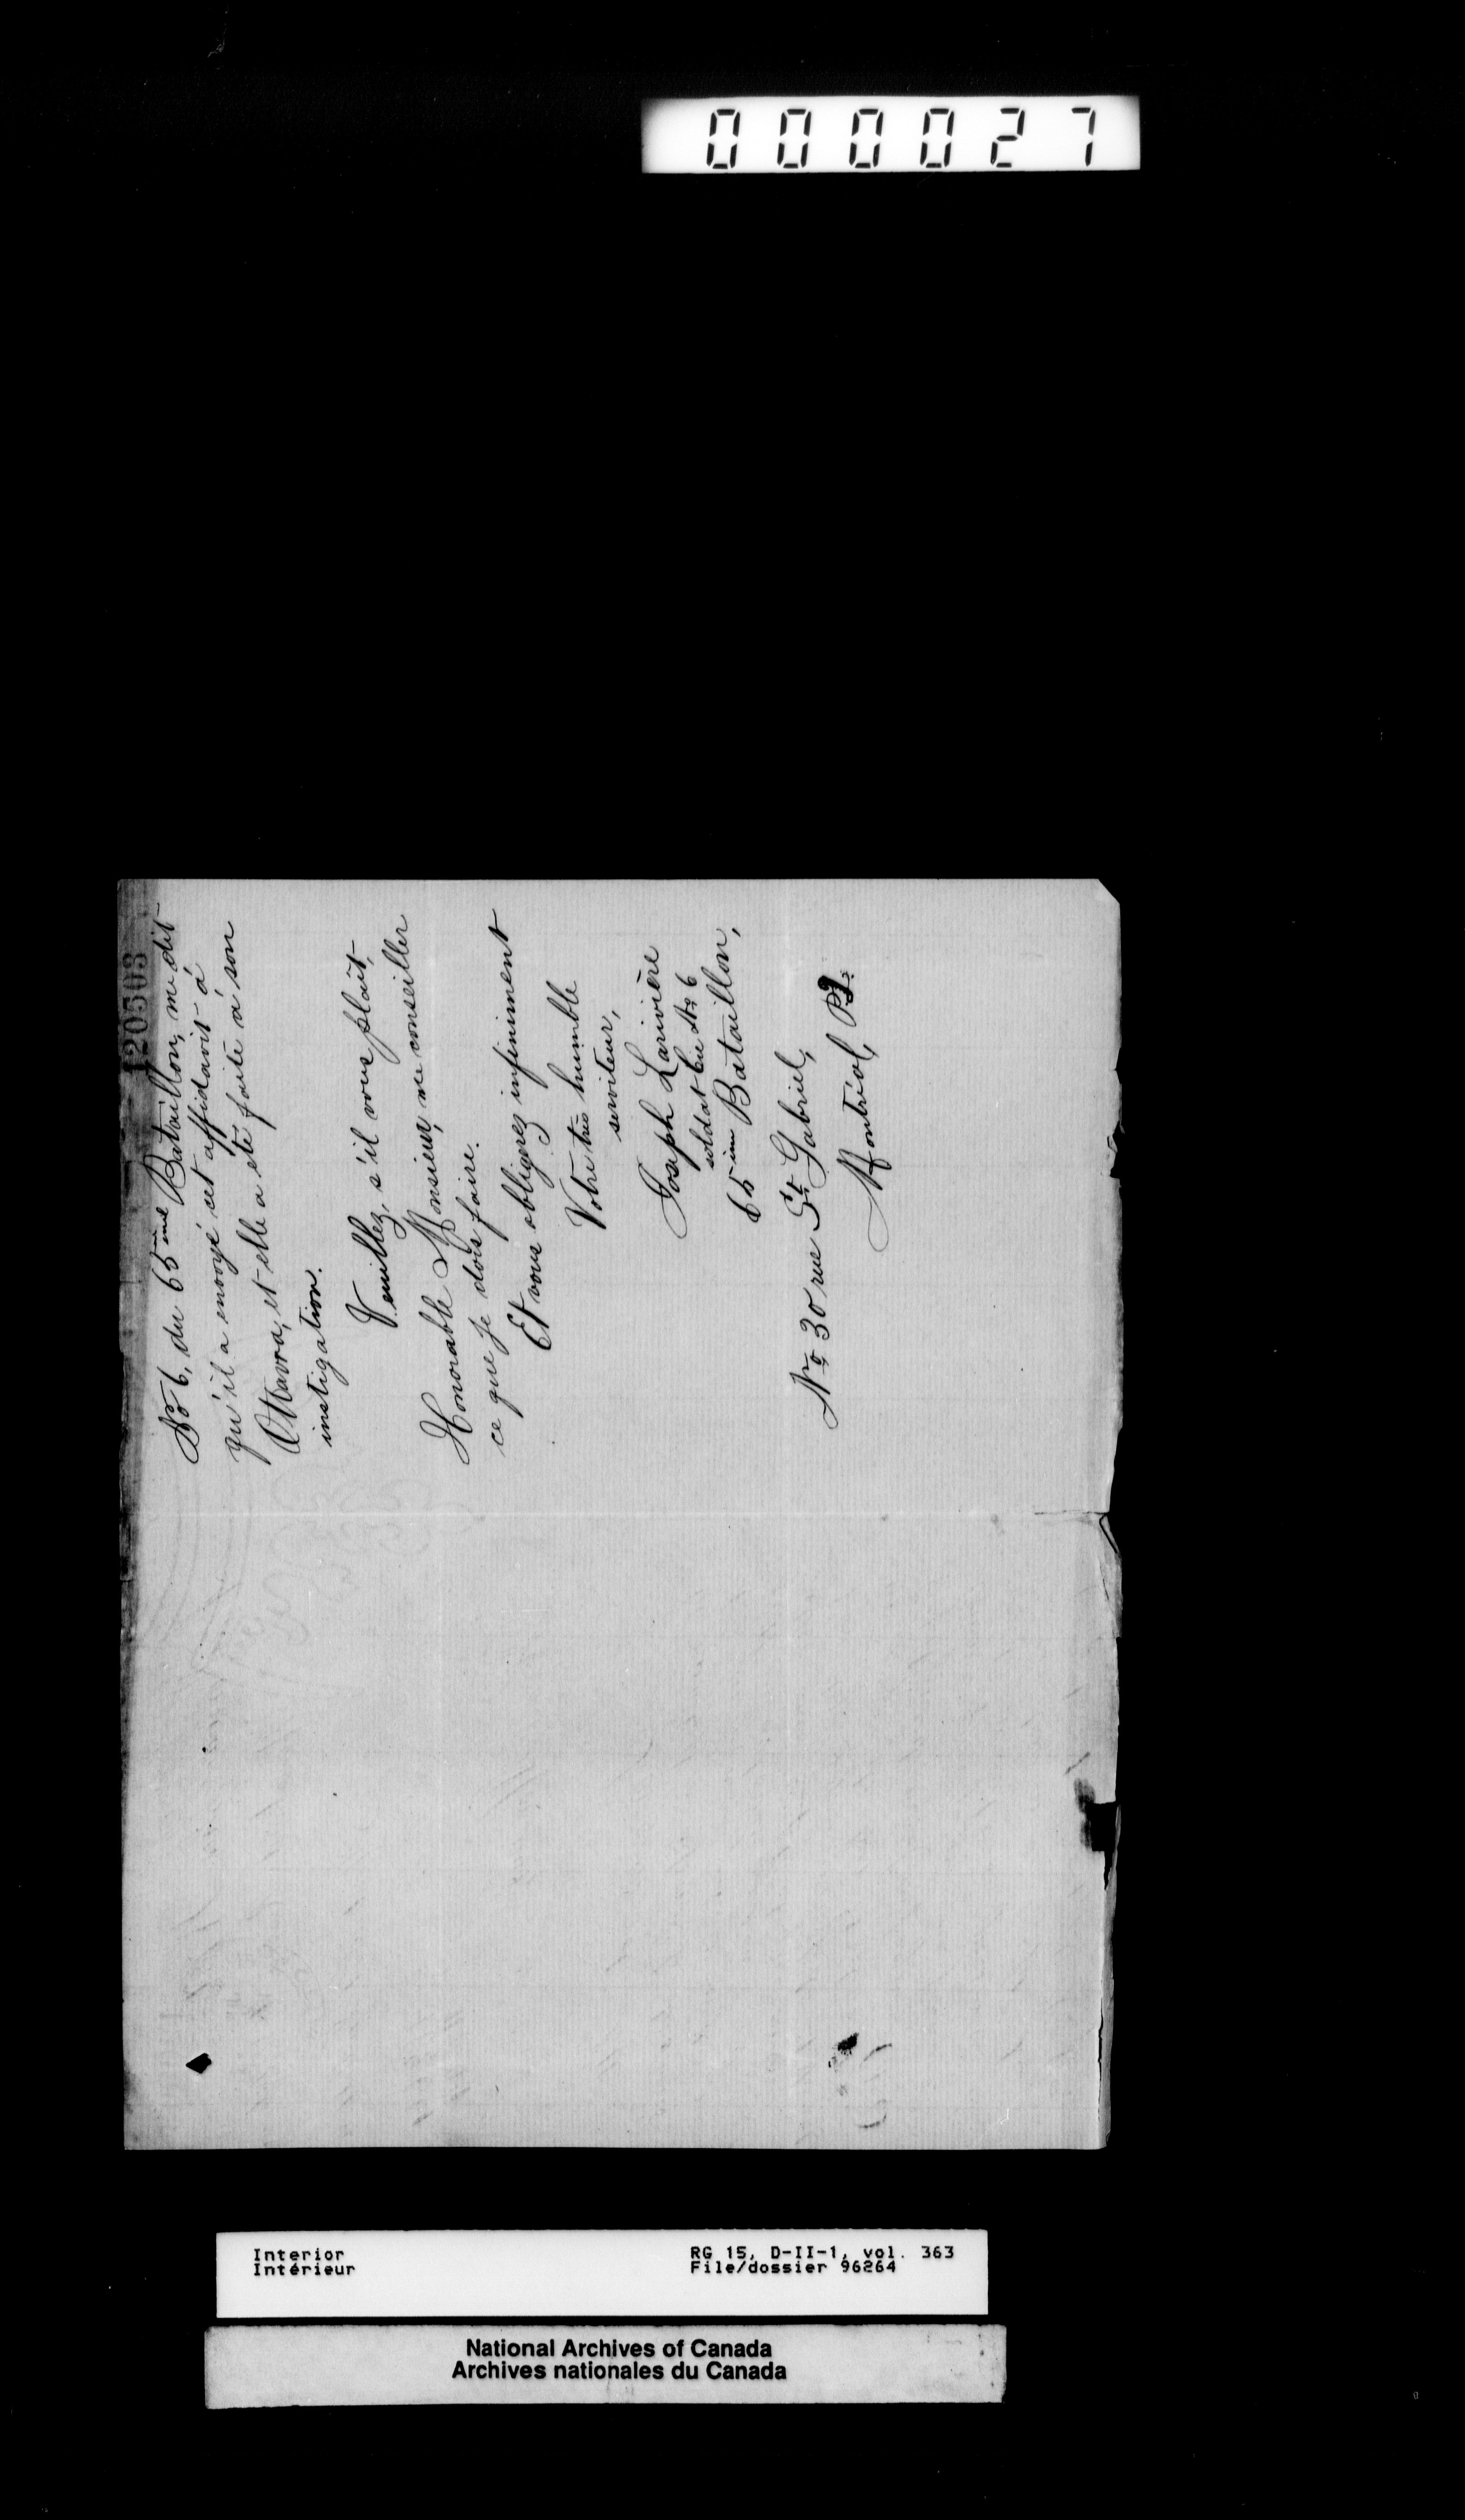 000027
120503
No 6, du 65ème Bataillon, me dit
qu'il a envoyé cet affidavit à
Ottawa, et elle a été faite à son
instigation.
Veuillez, s'il vous plaît,
Honorable Monsieur, me conseiller
ce que je dois faire.
Et vous obligerez infiniment
Votre très humble
serviteur,
Joseph Larivière
soldat Cie No 6
65ème Bataillon,
No 30 rue St Gabriel,
Montréal,
Interior
Intérieur
RG 15, D-II-1, vol. 363
File/dossier 96264
National Archives of Canada
Archives nationales du Canada